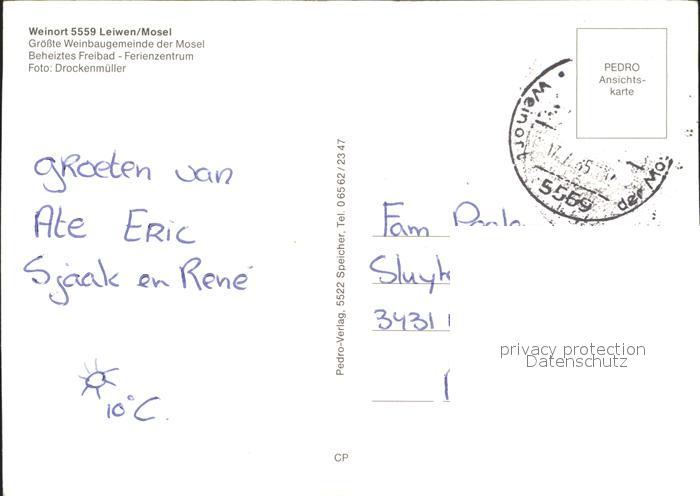 Weinort 5559 Leiwen/Mosel
Größte Weinbaugemeinde der Mosel
Beheiztes Freibad - Ferienzentrum
Foto: Drockenmüller
groeten van
Ate Eric
Sjaak en René
10°C.
Pedro-Verlag, 5522 Speicher, Tel. 06562/2347
CP
PEDRO
Ansichts-
karte
Weinort
5559
der Mo
Fam
3431
privacy protection
Datenschutz